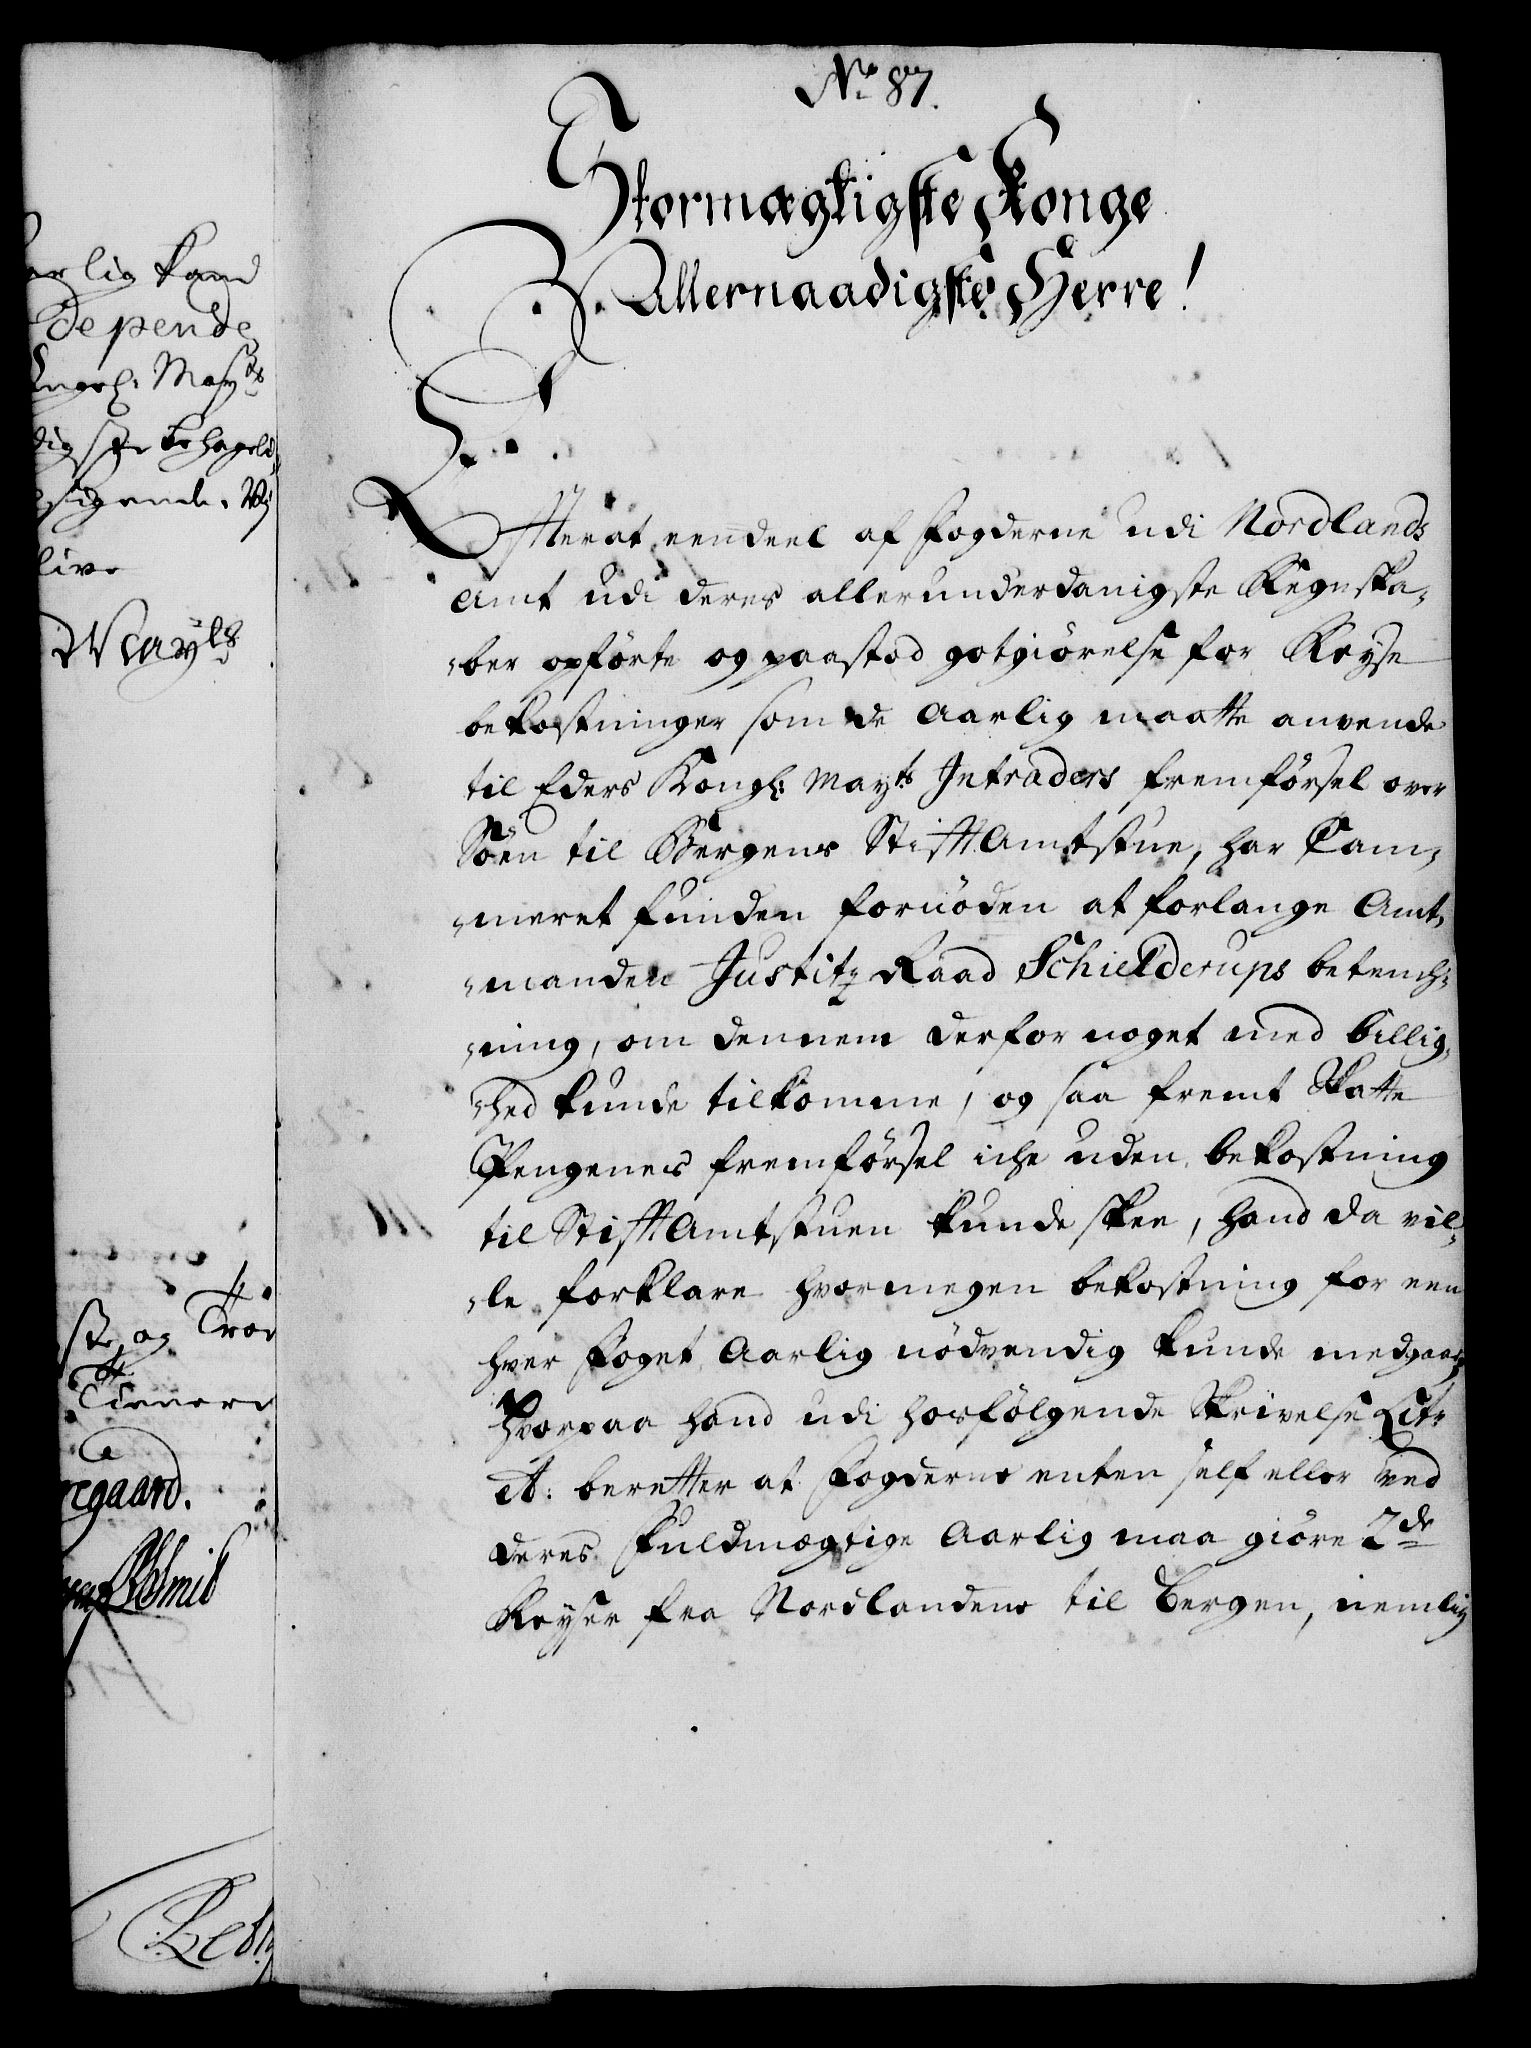 No 87.
Stormægtigste Konge
Allernaadigste Herre!
Efterat eendeel af Fogderne udi Nordlands
Amt udi deres allerunderdanigste Regnska,
,ber opförte og paastod gotgiörelse for Reyse
bekostninger som de Aarlig maatte anvende
til Eders Kongl: Mayts Intraders fremförsel over
Söen til Bergens StifftAmtstue, har Cam,
,meret funden fornöden at forlange Amt,
,manden Justitz Raad Schielderups betench,
,ning, om dennem derfor noget med billig,
,hed kunde tilkomme, og saa fremt Skatte
Pengenes fremförsel iche uden bekostning
til StifftAmtstuen kunde skee, hand da vil,
,le forklare hvormegen bekostning for een
hver Foget Aarlig nödvendig kunde medgaae,
Hvorpaa hand udi hosfölgende Skrivelse Litr
A: beretter at Fogderne enten self eller ved
deres Fuldmægtige Aarlig maa giöre 2de
Reyser fra Nordlandene til Bergen, nemlig
arlig kand
depende
Kongel: Mayts
digste behagel
live
Mayts
og Troe
Tienere
egaard.